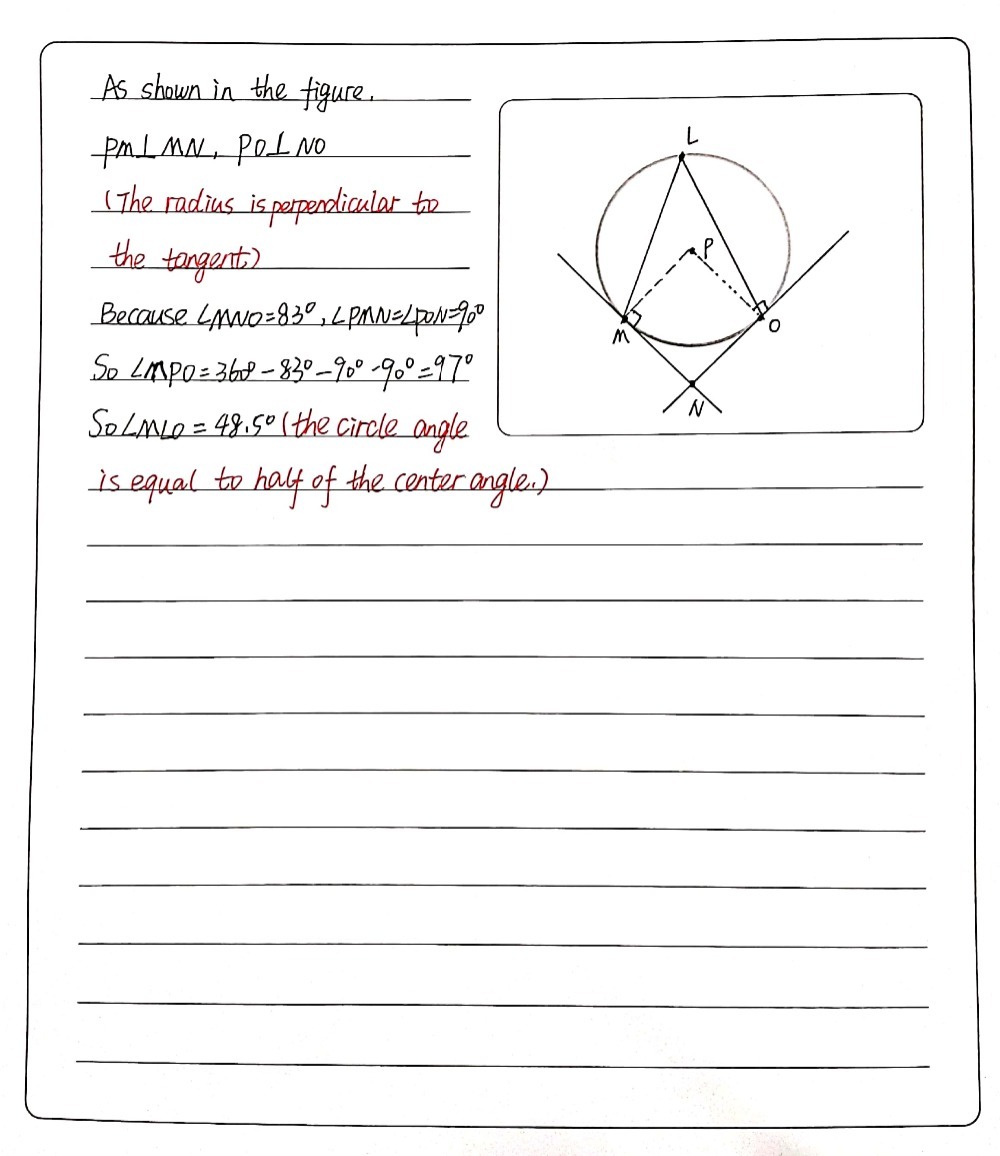 As shown in the figure.
PM⊥MN, PO⊥NO
(The radius is perpendicular to
the tangent)
Because ∠MNO=83°, ∠PMN=∠PON=90°
So ∠MPO=360°-83°-90°-90°=97°
So ∠MLO=48.5° (the circle angle
is equal to half of the center angle.)
L
P
M
O
N